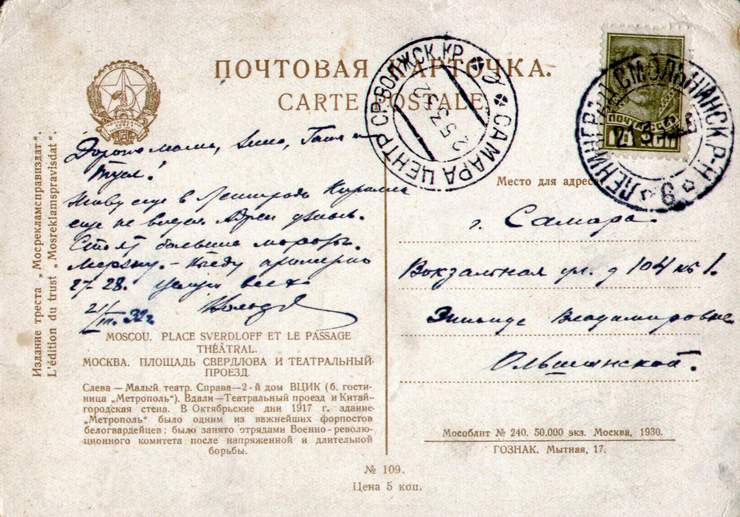 ПОЧТОВАЯ КАРТОЧКА.
CARTE POSTALE
САМАРА ЦЕНТР СР-ВОЛЖСК.КР.
ЛЕНИНГРАД СМОЛЬНИНСК Р-Н 9
ПОЧТА
Издание треста „Мосрекламсправиздат".
L'édition du trust „Mosreklamspravisdat".
Дорогие мама,
Живу еще в
еще не видел.
Стоят большие морозы.
Мерзну. - примерно
27-28. целую всех
2/III 32г.
Место для адреса
г. Самара.
Вокзальная ул. д 104 кв 1.
Зинаиде Владимировне
Ольшанской.
MOSCOU. PLACE SVERDLOFF ET LE PASSAGE
THÉÂTRAL.
МОСКВА. ПЛОЩАДЬ СВЕРДЛОВА И ТЕАТРАЛЬНЫЙ
ПРОЕЗД.
Слева — Малый театр. Справа—2-й дом ВЦИК (б. гости-
ница „Метрополь"). Вдали—Театральный проезд и Китай-
городская стена. В Октябрьские дни 1917 г. здание
„Метрополь" было одним из важнейших форпостов
белогвардейцев; было занято отрядами Военно-револю-
ционного комитета после напряженной и длительной
борьбы.
№ 109.
Цена 5 коп.
Мособлит № 240. 50.000 экз. Москва, 1930.
ГОЗНАК. Мытная, 17.